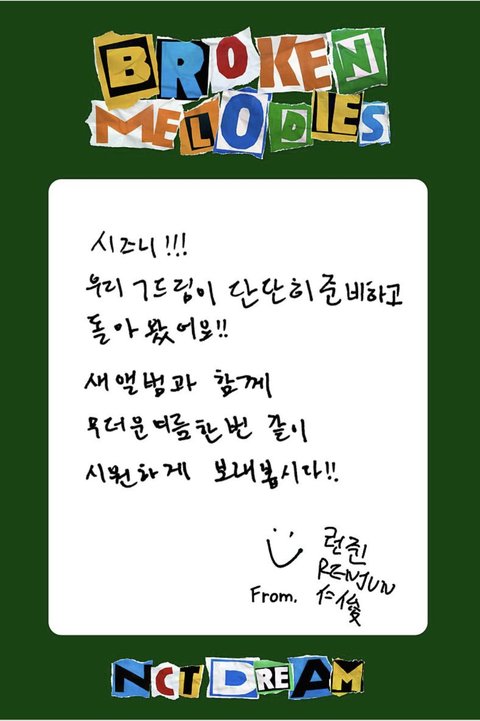 BROKEN
MELODIES
시즈니!!!
우리 7드림이 단단히 준비하고
돌아 왔어요!!
새앨범과 함께
무더운여름한번 같이
시원하게 보내봅시다!!
런쥔
RENJUN
From. 仁俊
NCT DREAM